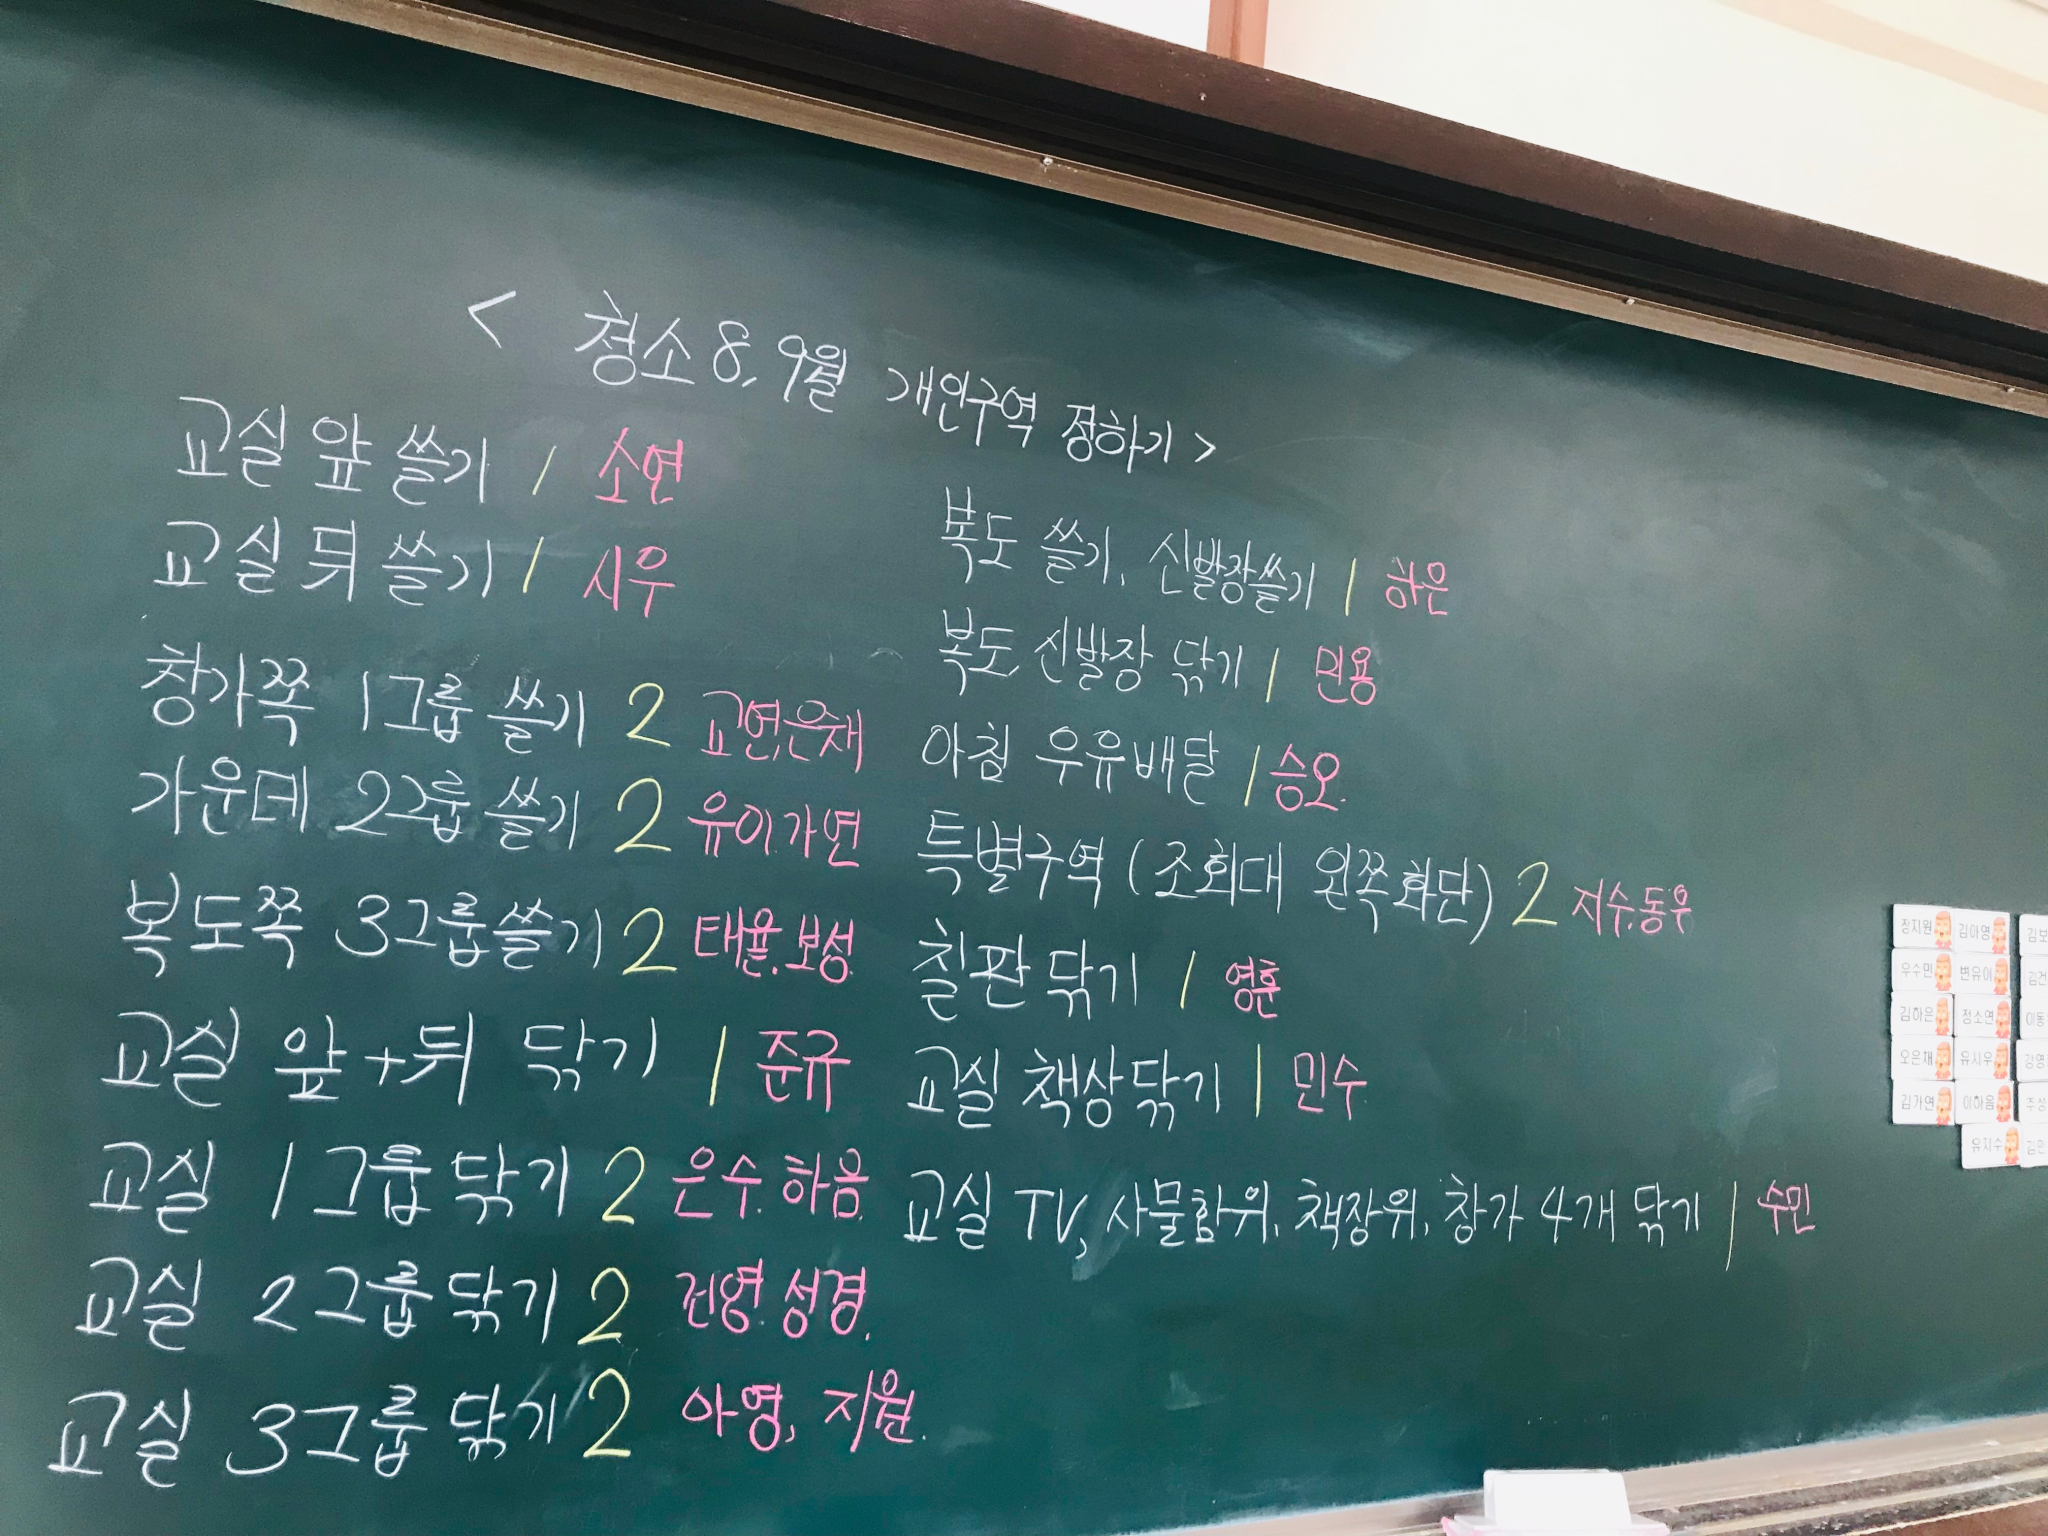 < 청소 8, 9월 개인구역 정하기 >
교실 앞 쓸기 1 소연
교실 뒤 쓸기 1 시우
창가쪽 1그룹 쓸기 2 교연,은재
가운데 2그룹 쓸기 2 유이 가연
복도쪽 3그룹 쓸기 2 태율, 보성
교실 앞+뒤 닦기 1 준규
교실 1그룹 닦기 2 은수. 하음.
교실 2그룹 닦기 2 건영. 성경.
교실 3그룹 닦기 2 아영, 지원.
복도 쓸기, 신발장쓸기 1 하은
복도, 신발장 닦기 1 민용
아침 우유배달 1 승오.
특별구역 (조회대 왼쪽화단) 2 지수,동우
칠판 닦기 1 영훈
교실 책상닦기 1 민수
교실 TV, 사물함위, 책장위, 창가 4개 닦기 1 수민
장지원 김아영 김보
우수민 변유이 김건
김하은 정소연 이동
오은재 유시우
김가연 이하음
유지수 김민